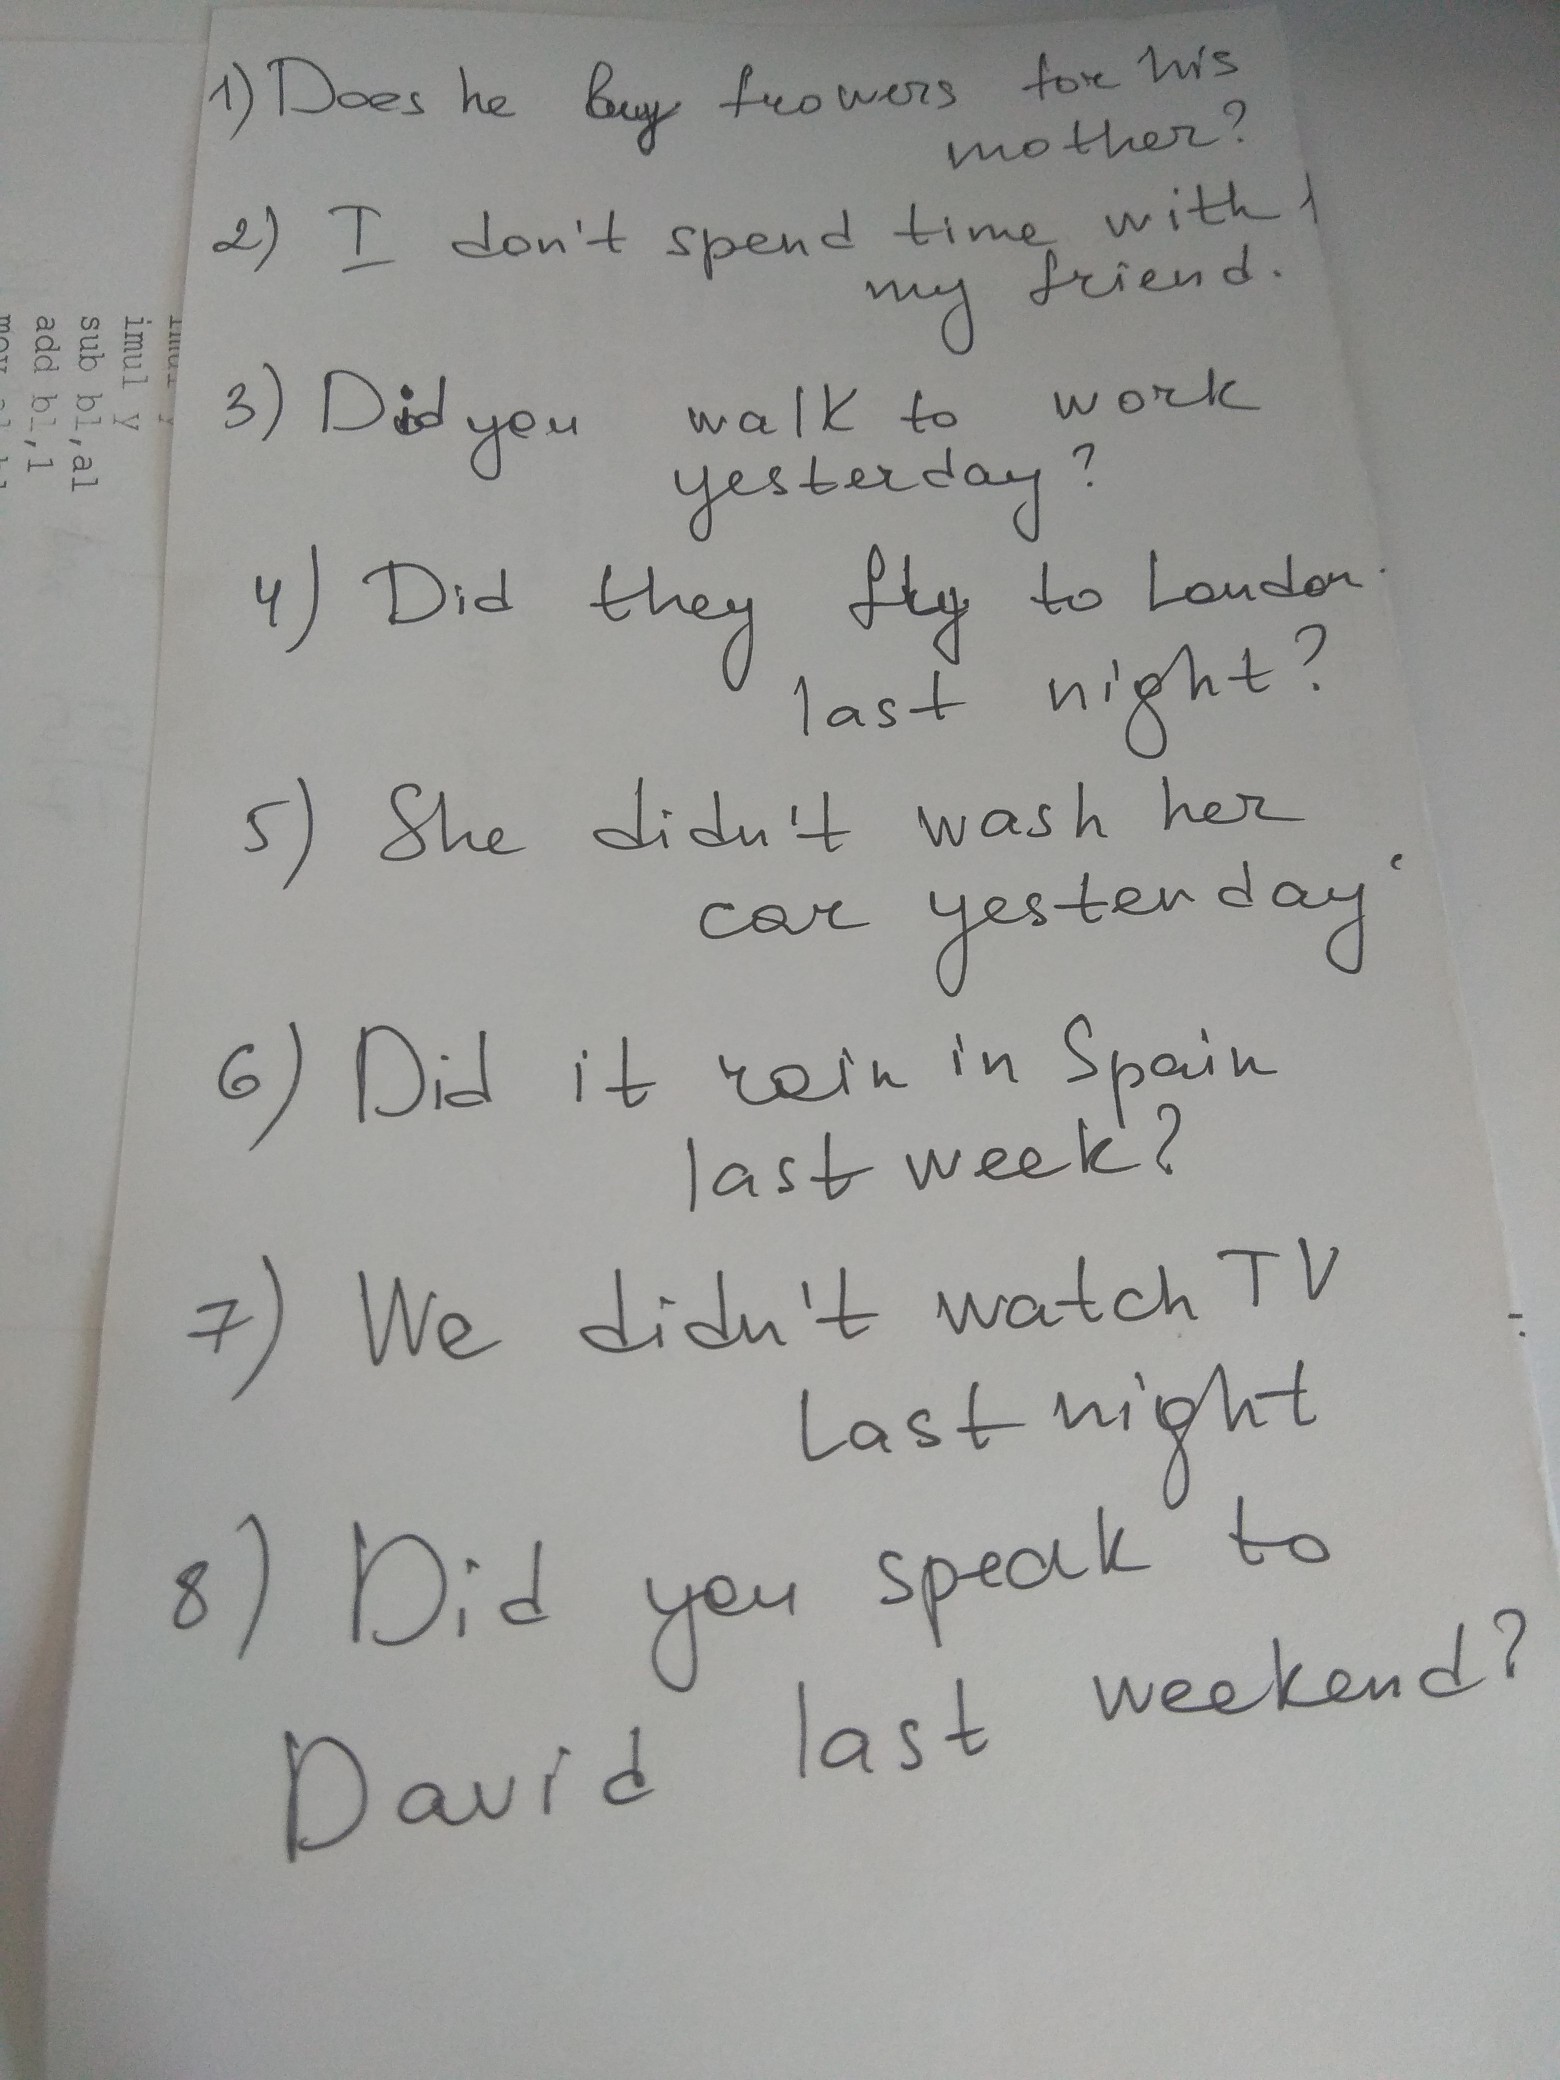 1) Does he buy frowers for his
mother?
2) I don't spend time with
my friend.
3) Did you walk to work
yesterday?
4) Did they fly to London
last night?
5) She didn't wash her
car yesterday
6) Did it rain in Spain
last week?
7) We didn't watch TV
Last night
8) Did you speak to
David last weekend?
imul y
sub bl,al
add bl,1